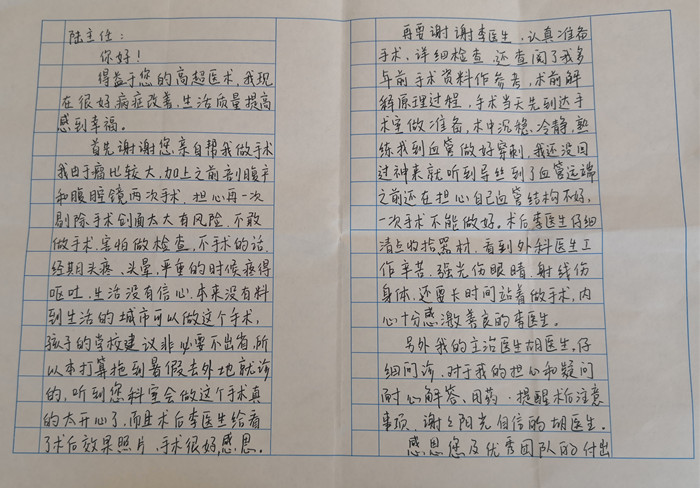 陆主任：
你好！
得益于您的高超医术，我现
在很好病症改善，生活质量提高
感到幸福。
首先谢谢您亲自帮我做手术
我由于瘤比较大，加上之前剖腹产
和腹腔镜两次手术，担心再一次
剔除手术创面太大有风险，不敢
做手术，害怕做检查，不手术的话，
经期头疼、头晕，严重的时候疼得
呕吐，生活没有信心，本来没有料
到生活的城市可以做这个手术，
孩子的学校建议非必要不出省，所
以本打算拖到暑假去外地就诊
的，听到您科室会做这个手术真
的太开心了，而且术后李医生给看
了术后效果照片，手术很好，感恩。
再要谢谢李医生，认真准备
手术，详细检查，还查阅了我多
年前手术资料作参考，术前解
释原理过程，手术当天先到达手
术室做准备，术中沉稳、冷静，熟
练找到血管做好穿刺，我还没回
过神来就听到导丝到了血管远端
之前还在担心自己血管结构不好，
一次手术不能做好。术后李医生仔细
清点收拾器材，看到外科医生工
作辛苦，强光伤眼睛，射线伤
身体，还要长时间站着做手术，内
心十分感激善良的李医生。
另外我的主治医生胡医生，仔
细问诊，对于我的担心和疑问
耐心解答、用药，提醒术后注意
事项，谢谢阳光自信的胡医生。
感恩您及优秀团队的付出